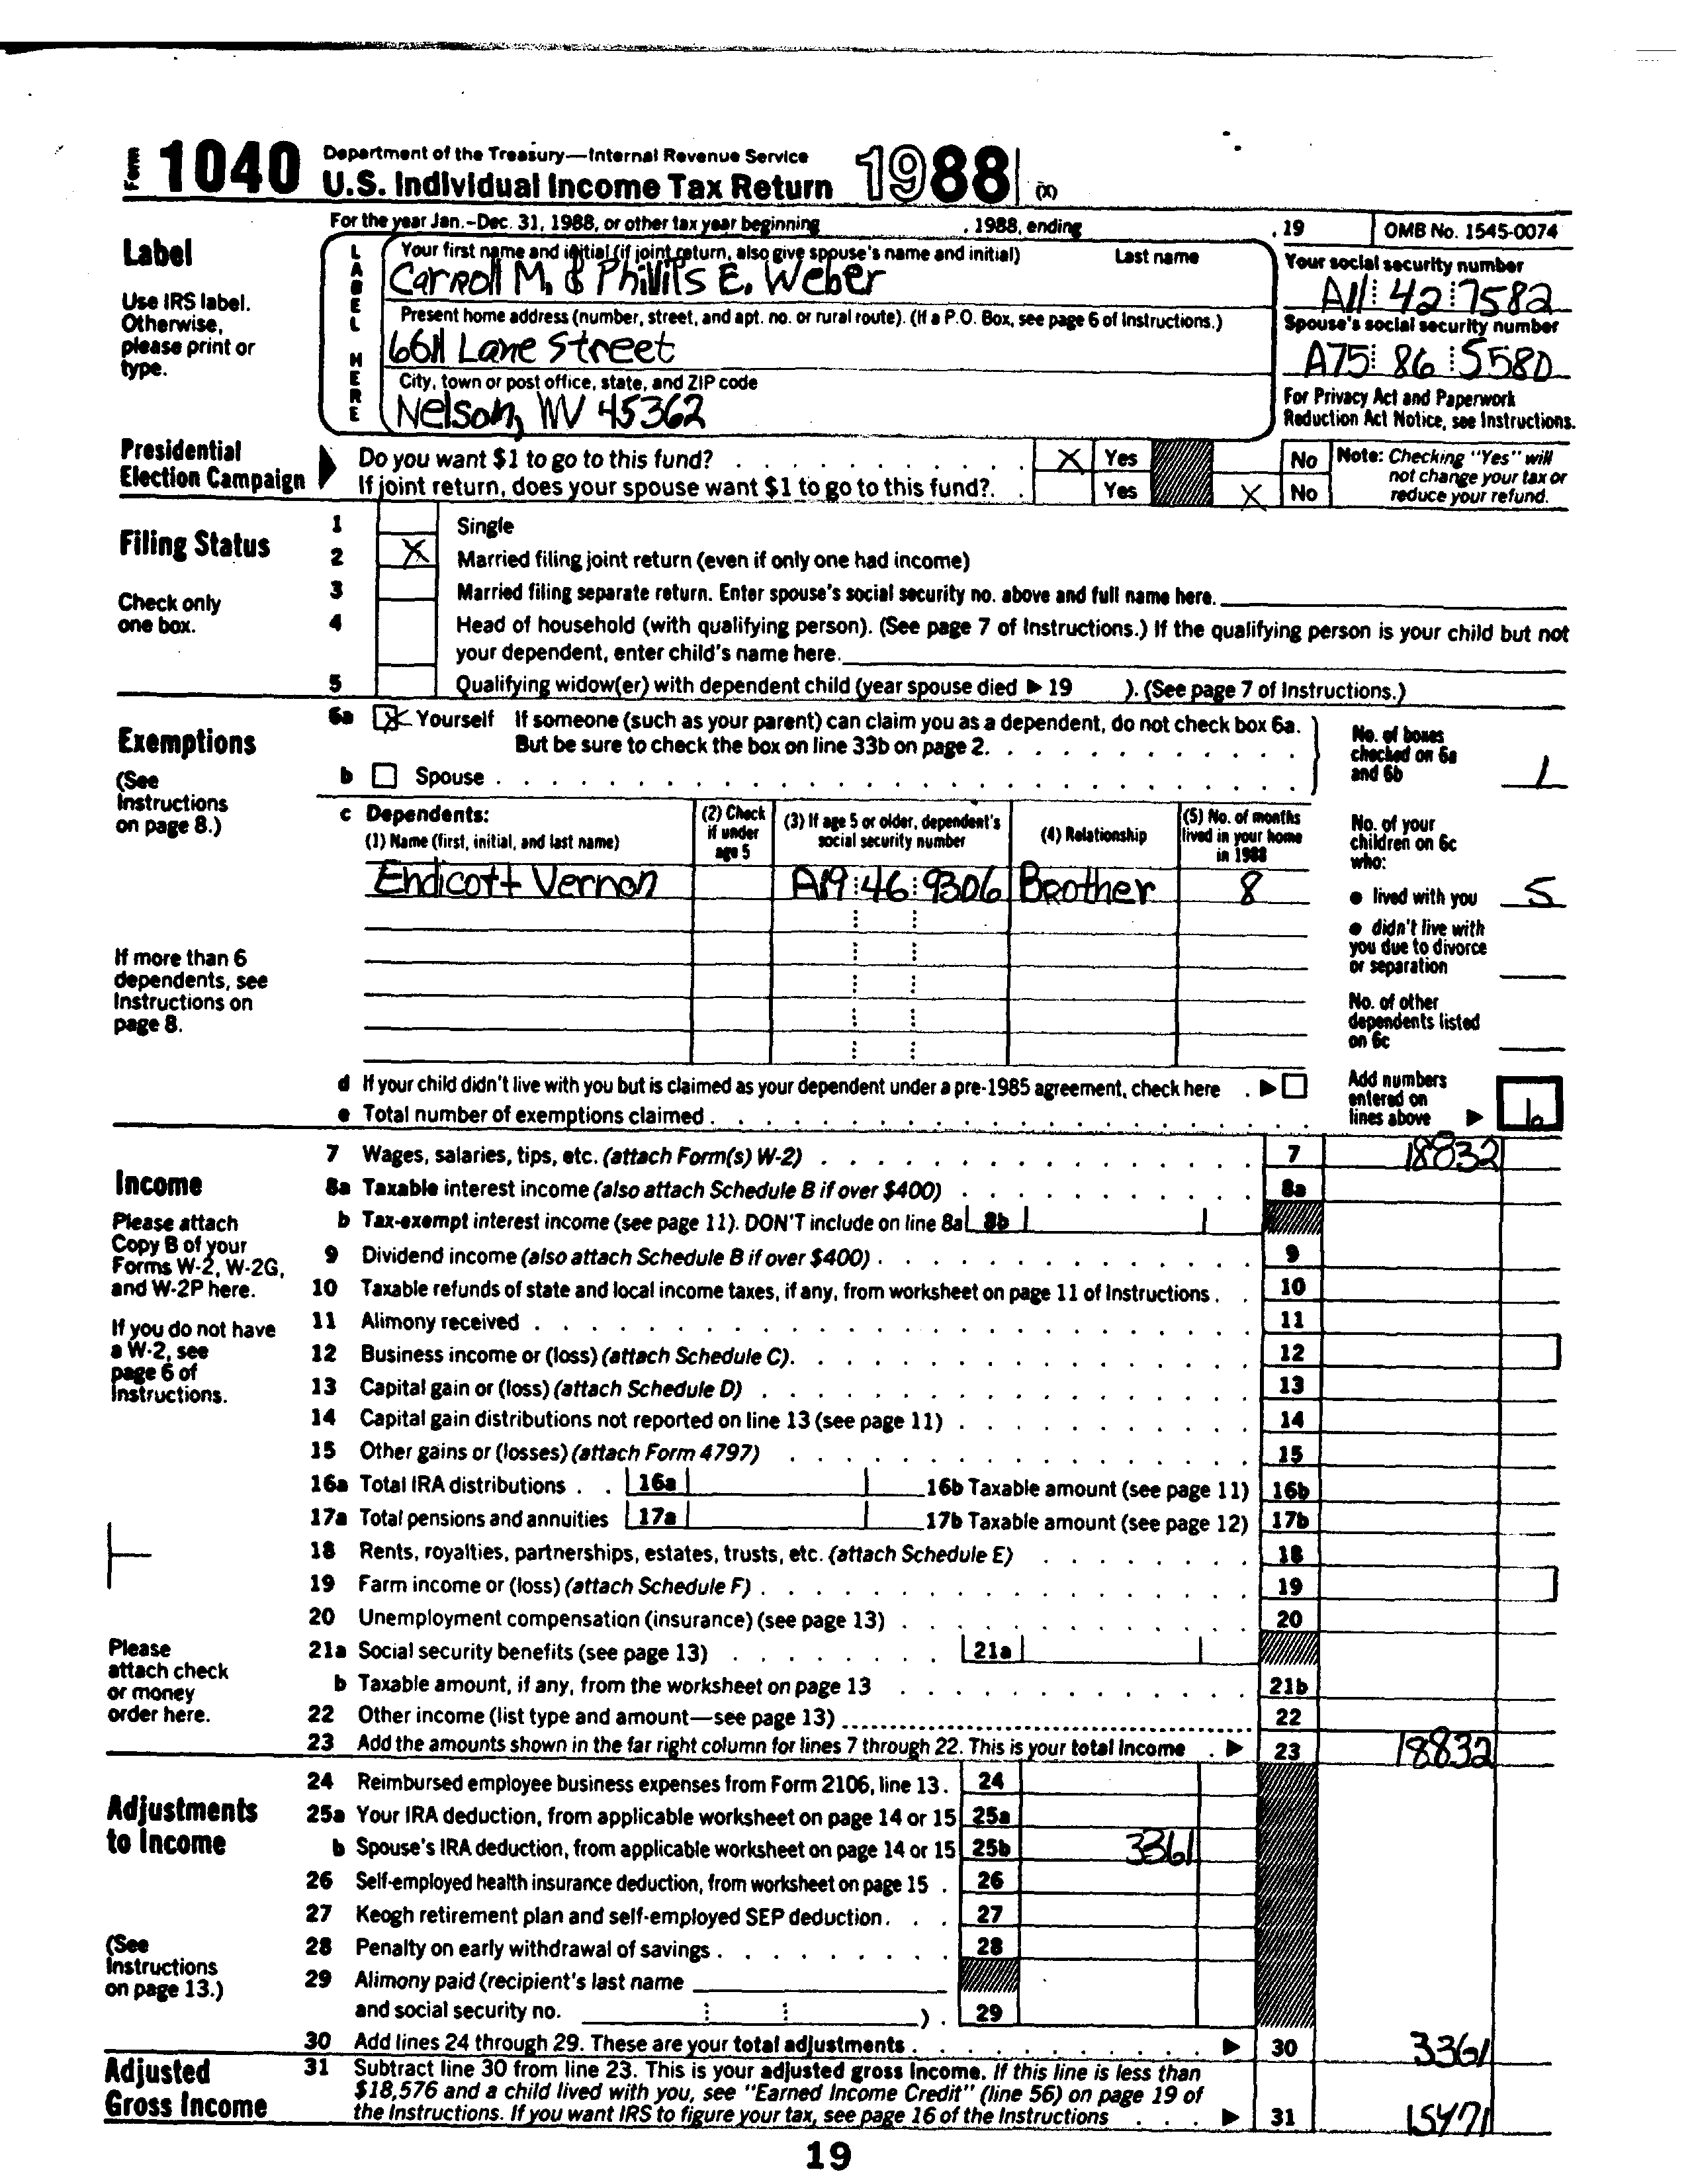 Form 1040 Department of the Treasury—Internal Revenue Service
U.S. Individual Income Tax Return 1988 (X)
For the year Jan.-Dec. 31, 1988, or other tax year beginning , 1988, ending , 19 OMB No. 1545-0074
Label
Use IRS label. Otherwise, please print or type.
LABEL HERE
Your first name and initial (if joint return, also give spouse's name and initial) Last name
Carroll M. & Phillis E. Weber
Your social security number
A11 42 7582
Present home address (number, street, and apt. no. or rural route). (If a P.O. Box, see page 6 of Instructions.)
6611 Lane Street
Spouse's social security number
A75 86 5580
City, town or post office, state, and ZIP code
Nelson, WV 45362
For Privacy Act and Paperwork
Reduction Act Notice, see Instructions.
Presidential
Election Campaign
Do you want $1 to go to this fund? X Yes No
If joint return, does your spouse want $1 to go to this fund?. Yes X No
Note: Checking "Yes" will
not change your tax or
reduce your refund.
Filing Status
Check only
one box.
1 Single
2 X Married filing joint return (even if only one had income)
3 Married filing separate return. Enter spouse's social security no. above and full name here.
4 Head of household (with qualifying person). (See page 7 of Instructions.) If the qualifying person is your child but not
your dependent, enter child's name here.
5 Qualifying widow(er) with dependent child (year spouse died ▶ 19 ). (See page 7 of Instructions.)
Exemptions
(See
Instructions
on page 8.)
6a X Yourself If someone (such as your parent) can claim you as a dependent, do not check box 6a.
But be sure to check the box on line 33b on page 2.
b Spouse
No. of boxes
checked on 6a
and 6b 1
c Dependents:
(1) Name (first, initial, and last name)
(2) Check
if under
age 5
(3) If age 5 or older, dependent's
social security number
(4) Relationship
(5) No. of months
lived in your home
in 1988
Endicott Vernon A19 46 9306 Brother 8
No. of your
children on 6c
who:
● lived with you 5
● didn't live with
you due to divorce
or separation
No. of other
dependents listed
on 6c
If more than 6
dependents, see
Instructions on
page 8.
d If your child didn't live with you but is claimed as your dependent under a pre-1985 agreement, check here . ▶
e Total number of exemptions claimed
Add numbers
entered on
lines above ▶ 6
Income
Please attach
Copy B of your
Forms W-2, W-2G,
and W-2P here.
If you do not have
a W-2, see
page 6 of
Instructions.
7 Wages, salaries, tips, etc. (attach Form(s) W-2) 7 18832
8a Taxable interest income (also attach Schedule B if over $400) 8a
b Tax-exempt interest income (see page 11). DON'T include on line 8a 8b
9 Dividend income (also attach Schedule B if over $400) 9
10 Taxable refunds of state and local income taxes, if any, from worksheet on page 11 of Instructions 10
11 Alimony received 11
12 Business income or (loss) (attach Schedule C). 12
13 Capital gain or (loss) (attach Schedule D) 13
14 Capital gain distributions not reported on line 13 (see page 11) 14
15 Other gains or (losses) (attach Form 4797) 15
16a Total IRA distributions 16a 16b Taxable amount (see page 11) 16b
17a Total pensions and annuities 17a 17b Taxable amount (see page 12) 17b
18 Rents, royalties, partnerships, estates, trusts, etc. (attach Schedule E) 18
19 Farm income or (loss) (attach Schedule F) 19
20 Unemployment compensation (insurance) (see page 13) 20
21a Social security benefits (see page 13) 21a
b Taxable amount, if any, from the worksheet on page 13 21b
22 Other income (list type and amount—see page 13) 22
23 Add the amounts shown in the far right column for lines 7 through 22. This is your total income ▶ 23 18832
Please
attach check
or money
order here.
Adjustments
to Income
(See
Instructions
on page 13.)
24 Reimbursed employee business expenses from Form 2106, line 13. 24
25a Your IRA deduction, from applicable worksheet on page 14 or 15 25a
b Spouse's IRA deduction, from applicable worksheet on page 14 or 15 25b 3361
26 Self-employed health insurance deduction, from worksheet on page 15 26
27 Keogh retirement plan and self-employed SEP deduction 27
28 Penalty on early withdrawal of savings 28
29 Alimony paid (recipient's last name
and social security no. ) 29
30 Add lines 24 through 29. These are your total adjustments ▶ 30 3361
Adjusted
Gross Income
31 Subtract line 30 from line 23. This is your adjusted gross income. If this line is less than
$18,576 and a child lived with you, see "Earned Income Credit" (line 56) on page 19 of
the Instructions. If you want IRS to figure your tax, see page 16 of the Instructions ▶ 31 15471
19